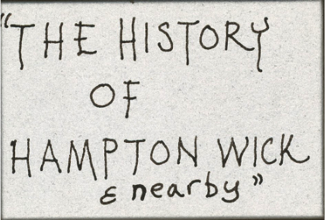 "THE HISTORY
OF
HAMPTON WICK
& nearby"